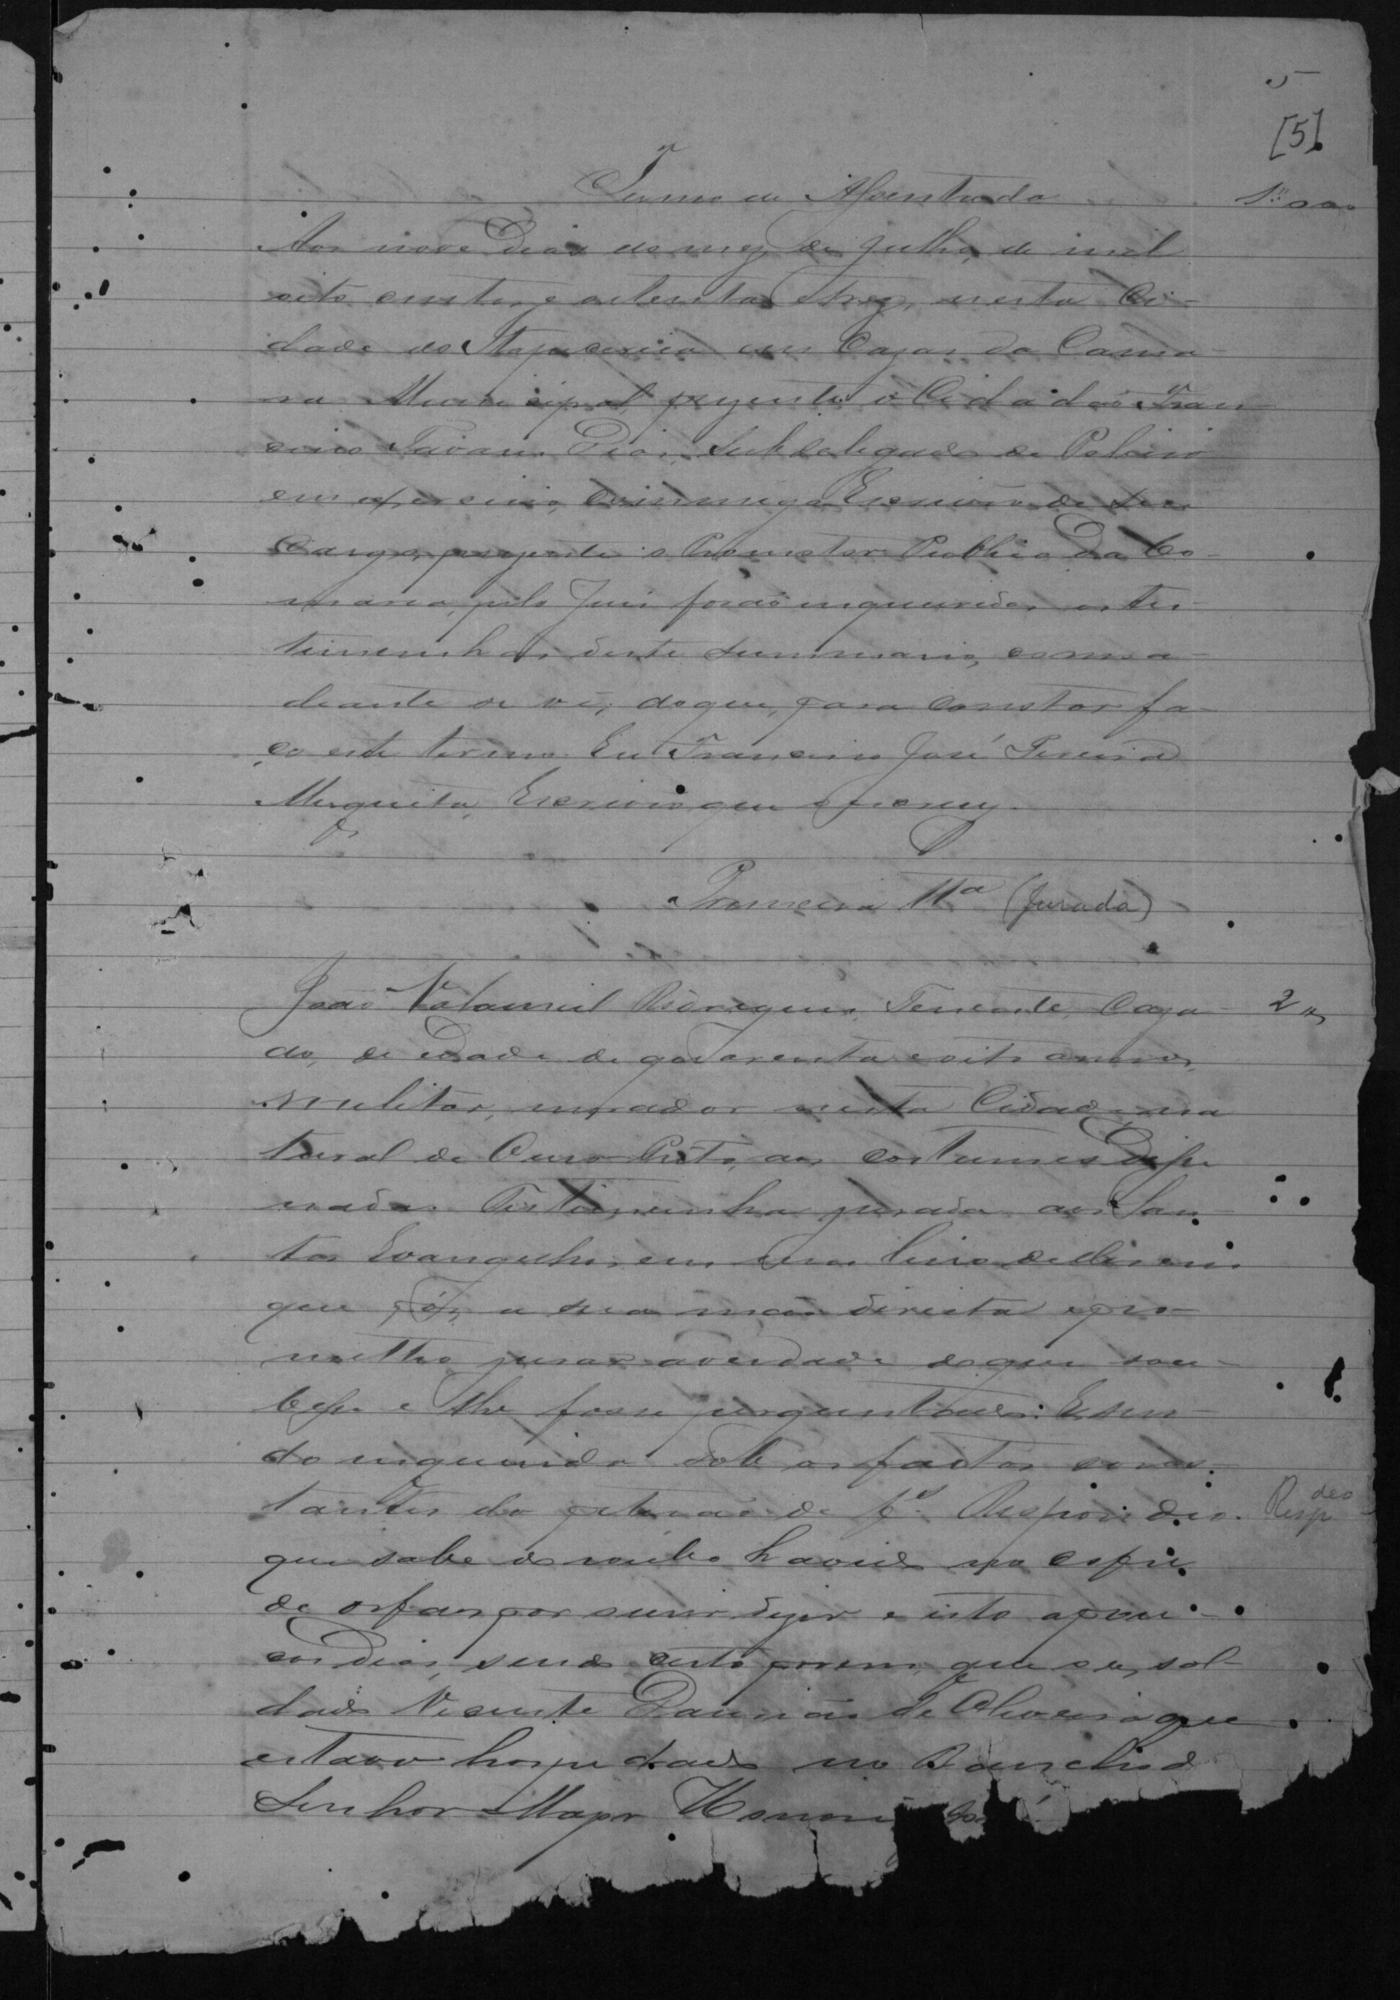 5
[5]
Termo de Assentada
Aos nove dias do mez de Julho, de mil
oito centos e oitenta e trez, nesta Ci-
dade de Itapecerica em Cazas da Cama-
ra Municipal, prezente o Cidadão Fran-
cisco Tavares Dias, Subdelegado de Policia
em exercicio, commigo Escrivão de seu
Cargo, prezente o Promotor Publico da Co-
marca, pelo Juiz forão inqueridas as tes-
timunhas deste summario, como a-
deante se vê, do que, para constar fa-
ço este termo. Eu Francisco José Pereira
Mesquita, Escrivão que escrevy.
Primeira Tta (Jurada)
João Rodrigues, Tenente, Caza-
do, de idade de quarenta e oito annos,
militar, morador nesta Cidade, na
tural de Ouro Preto, aos costumes disse
nada. Testimunha jurada aos San-
tos Evangelhos, em um livro delles em
que pôz a sua mão direita e pro-
metteo jurar a verdade do que sou-
besse e lhe fosse perguntado: E sen-
do inquerido sob os factos cons-
tantes da petição de f. Respondeo
Respdeo
que sabe do roubo havido no cofre
de orfãos por ouvir dizer e isto a pou-
cos dias, sendo certo porem, que o sol-
dado Vicente Damião de Oliveira que
estava hospedado no Rancho do
Senhor Major